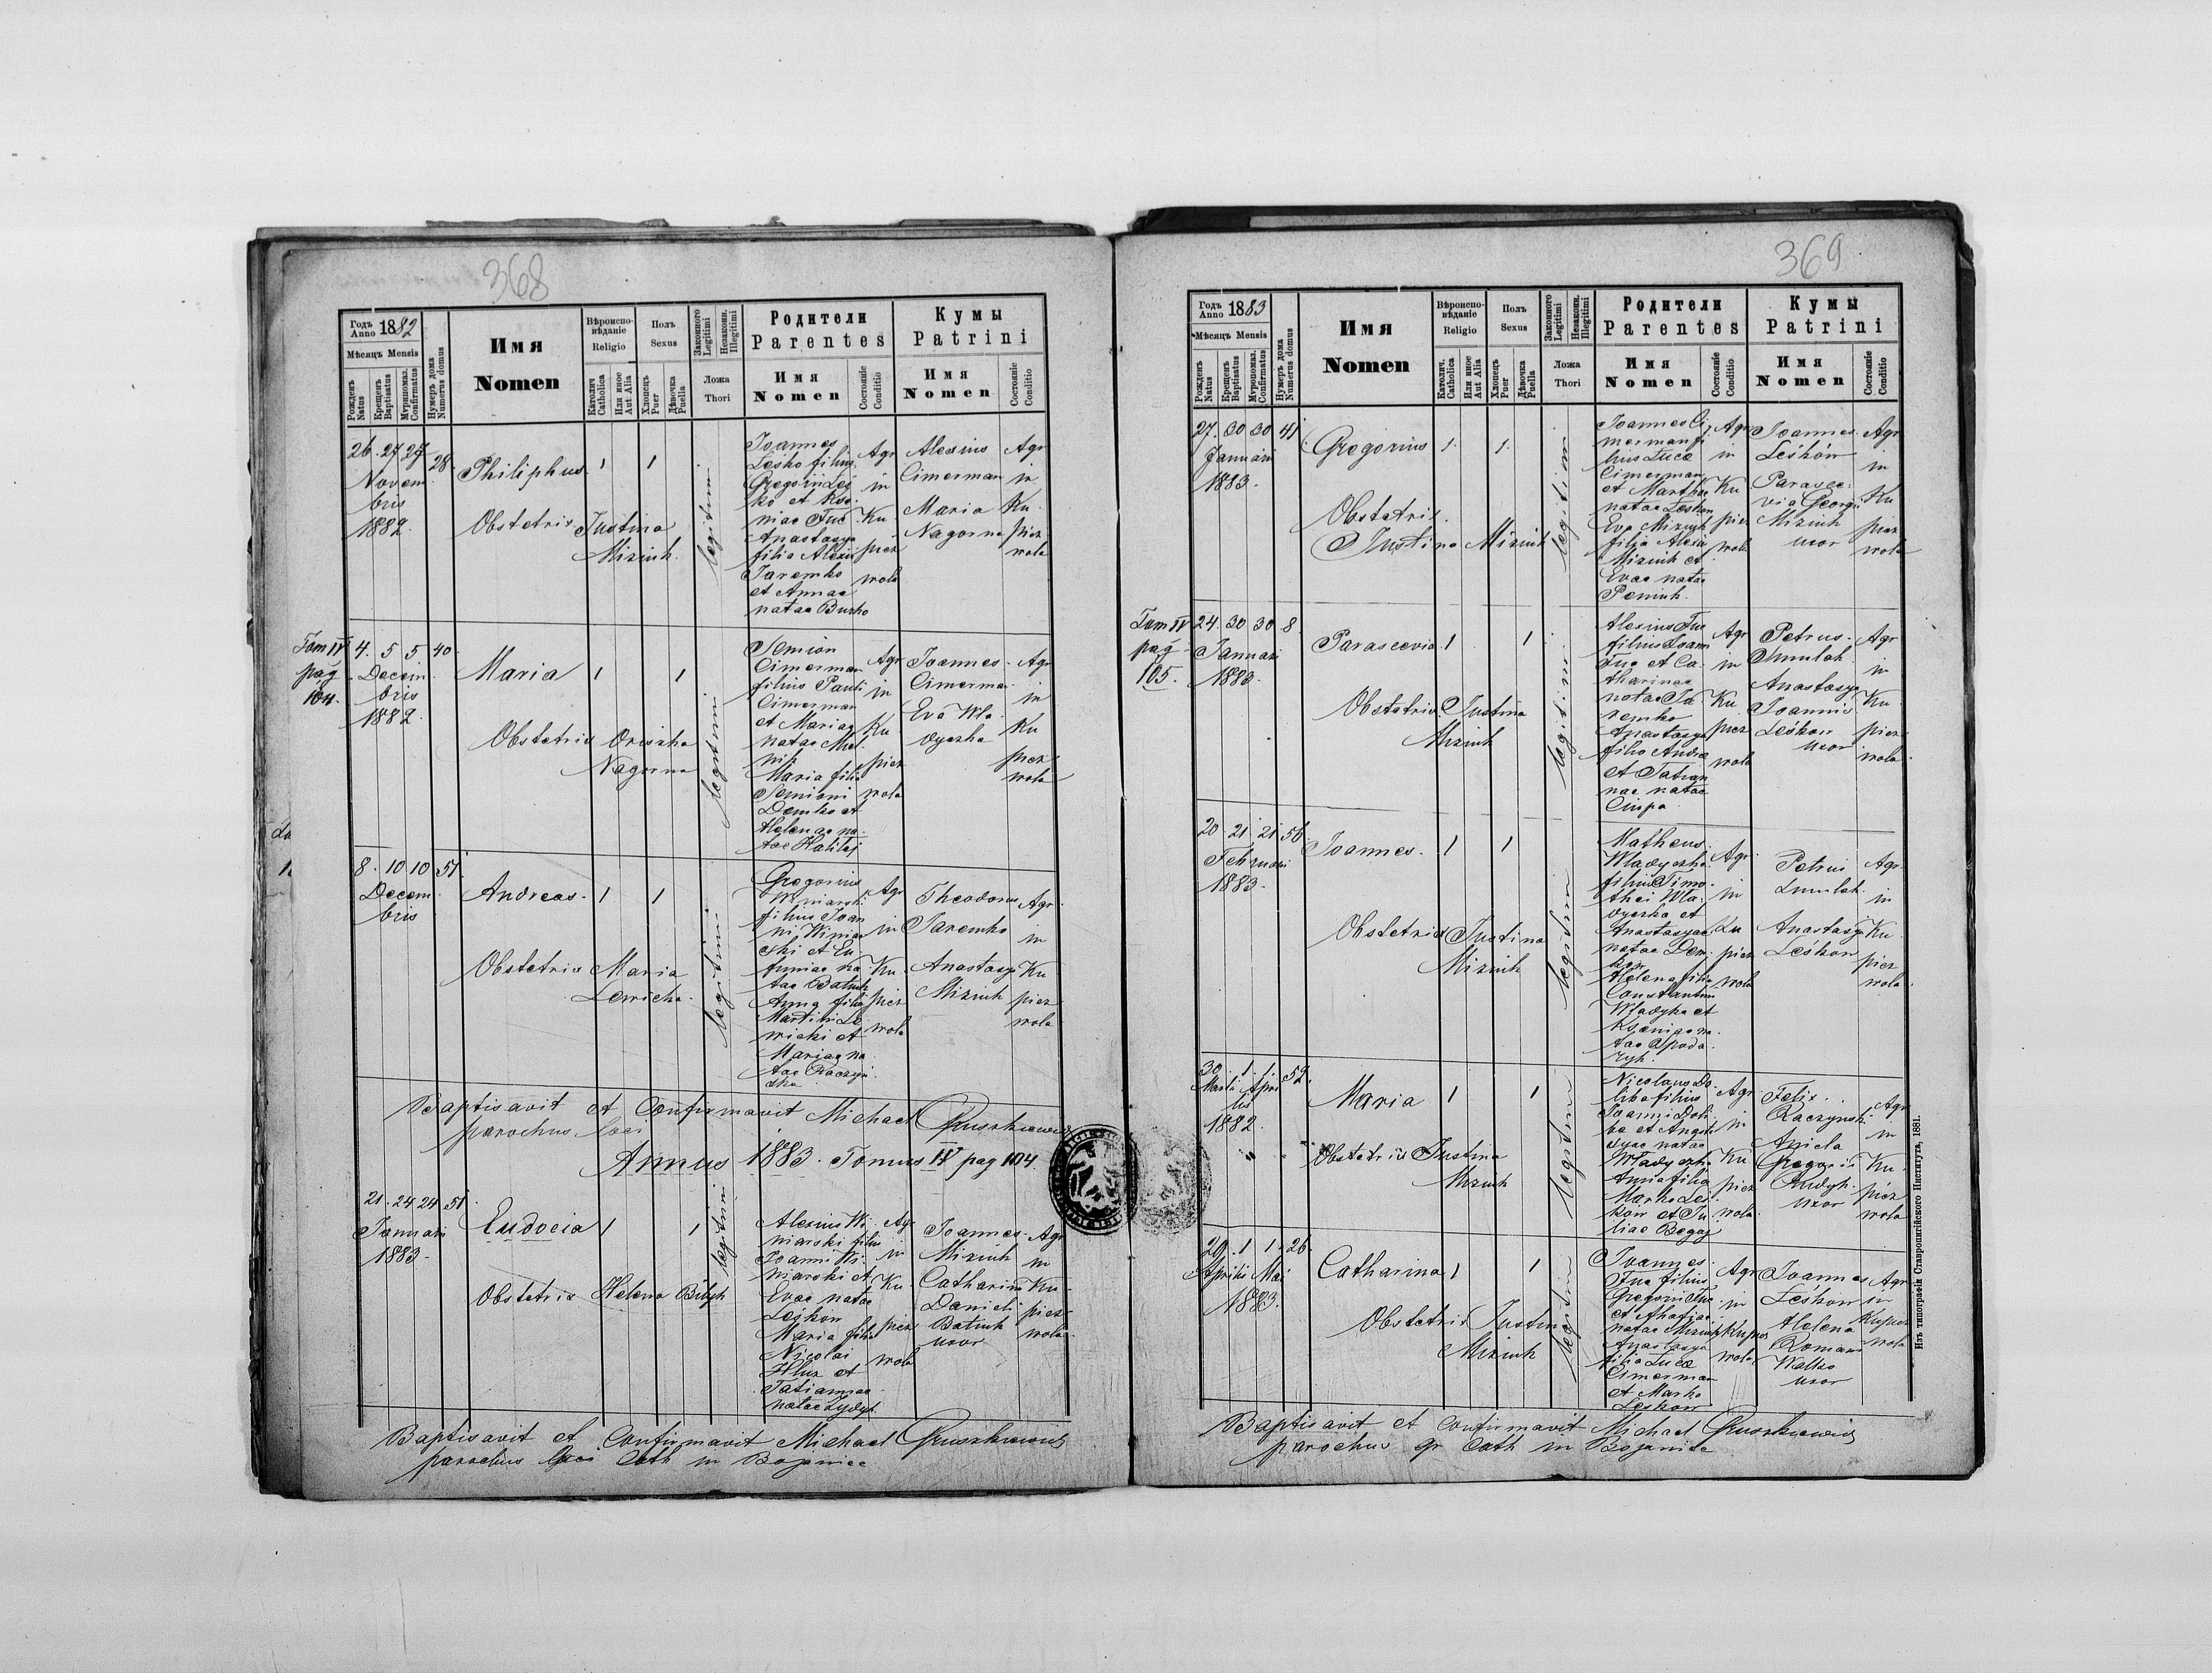 368
Годъ Anno 1882
Мѣсяцъ Mensis
Рожденъ Natus
Крещенъ Baptisatus
Муропомаз. Confirmatus
Нумеръ дома Numerus domus
Имя
Nomen
Вѣроиспо-
вѣданіе
Religio
Католич Catholica
Или иное Aut Alia
Полъ
Sexus
Хлопецъ Puer
Дѣвочка Puella
Законного Legitimi
Незаконн. Illegitimi
Ложа
Thori
Родители
Parentes
Имя
Nomen
Состояніе Conditio
Кумы
Patrini
Имя
Nomen
Состояніе Conditio
26. 27 27 28.
Novem
bris
1882.
Philiphus 1 1
Obstetrix Justina
Miziuk.
legitimi
Joannes
Leśko filius
Gregorii Leś
ko et Kse
niae Fuc
Anastasya
filia Alexii
Jaremko
et Annae
natae Burko
Agr
in
Ku
picz
wola
Alexius
Cimerman
Maria
Nagorna
Agr
in
Ku
picz
wola
Tom IV
pag
104.
4. 5 5 40
Decem
bris
1882.
Maria 1 1
Obstetrix Oryszka
Nagorna
legitimi
Semion
Cimerman
filius Pauli
Cimerman
et Mariae
natae Mel
nik
Maria filia
Semioni
Demko et
Helenae na
tae Halitej
Agr
in
Ku
picz
wola
Joannes
Cimerman
Eva Wla
dyczka
Agr
in
Ku
picz
wola
8. 10 10 51.
Decem
bris
Andreas. 1 1
Obstetrix Maria
Lewicka.
legitimi
Gregorius
Winiarski
filius Joan
ni Winiar
ski et Eu
femiae na
tae Batiuk
Anna filia
Martini Le
wicki et
Mariae na
tae Raczyń
ska
Agr
in
Ku
picz
wola
Theodorus
Jaremko
Anastasya
Miziuk
Agr
in
Ku
picz
wola
Baptisavit et Confirmavit Michael Gruszkiewicz
parochus loci
Annus 1883. Tomus IV pag 104
21. 24 24 51.
Januari
1883.
Eudocia 1 1
Obstetrix Helena Bilyk
legitimi
Alexius Wi
niarski filius
Joanni Wi
niarski et
Evae natae
Leśkow
Maria filia
Nicolai
Hluz et
Tatiannae
natae Dydyk.
Agr
in
Ku
picz
wola
Joannes
Miziuk
Catharina
Danieli
Batiuk
uxor
Agr
in
Ku
picz
wola
Baptisavit et Confirmavit Michael Gruszkiewicz
parochus loci Cath in Bojanice
369
Годъ Anno 1883
Мѣсяцъ Mensis
Рожденъ Natus
Крещенъ Baptisatus
Муропомаз. Confirmatus
Нумеръ дома Numerus domus
Имя
Nomen
Вѣроиспо-
вѣданіе
Religio
Католич. Catholica
Или иное Aut Alia
Полъ
Sexus
Хлопецъ Puer
Дѣвочка Puella
Законного Legitimi
Незаконн. Illegitimi
Ложа
Thori
Родители
Parentes
Имя
Nomen
Состояніе Conditio
Кумы
Patrini
Имя
Nomen
Состояніе Conditio
27. 30 30 41
Januari
1883.
Gregorius 1. 1.
Obstetrix
Justina Miziuk
legitimi
Joannes Ci
merman fi
lius Lucae
Cimerman
et Marthae
natae Leskow
Eva Miziuk
filia Alexii
Miziuk et
Evae natae
Peniuk.
Agr
in
Ku
picz
wola
Joannes
Leśków
Parasce
via Georgii
Miziuk
uxor
Agr
in
Ku
picz
wola
Tom IV
pag
105.
24. 30 30 8.
Januari
1883.
Parascevia 1 1
Obstetrix Justina
Miziuk
legitimi
Alexius Fuc
filius Joann
Fuc et Ca
tharinae
natae Ja
remko
Anastasya
filia Andrea
et Tatian
nae natae
Ciupa
Agr
in
Ku
picz
wola
Petrus
Smulak
Anastasya
Joannis
Leśkow
uxor
Agr
in
Ku
picz
wola
20 21 21 56
Februari
1883.
Joannes. 1 1
Obstetrix Justina
Miziuk
legitimi
Matheus
Wladyczka
filius Timo
thei Wla
dyczka et
Anastasyae
natae Dem
kow
Helena filia
Constantini
Wladyka et
Kseniae na
tae
Agr
in
Ku
picz
wola
Petrus
Smulak
Anastasya
Leśkow
Agr
in
Ku
picz
wola
30 1 1 52.
Martii Apri
lis
1882.
Maria 1 1
Obstetrix Justina
Miziuk
legitimi
Nicolaus Do
liba filius
Joanni Doli
ba et Anasta
syae natae
Wladyczka
Anna filia
Marko Leś
kow et Ju
liae Begaj
Agr
in
Ku
picz
wola
Felix
Raczynski
Aniela
Gregorii
Rudyk
uxor
Agr
in
Ku
picz
wola
29 1 1 26.
Aprilis Mai
1883.
Catharina 1 1
Obstetrix Justina
Miziuk
legitimi
Joannes
Fuc filius
Gregorii Fuc
et Ahafiae
natae Miziuk
Anastasya
filia Lucae
Cimerman
et Marko
Leskow
Agr
in
Kupicz
wola
Joannes
Leśkow
Helena
Romani
Walko
uxor
Agr
in
Kupicz
wola
Baptisavit et Confirmavit Michael Gruszkiewicz
parochus gr Cath in Bojanice
Изъ типографіи Ставропигійского Института, 1881.